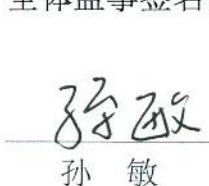 全体监事签名
孙敏
孙 敏